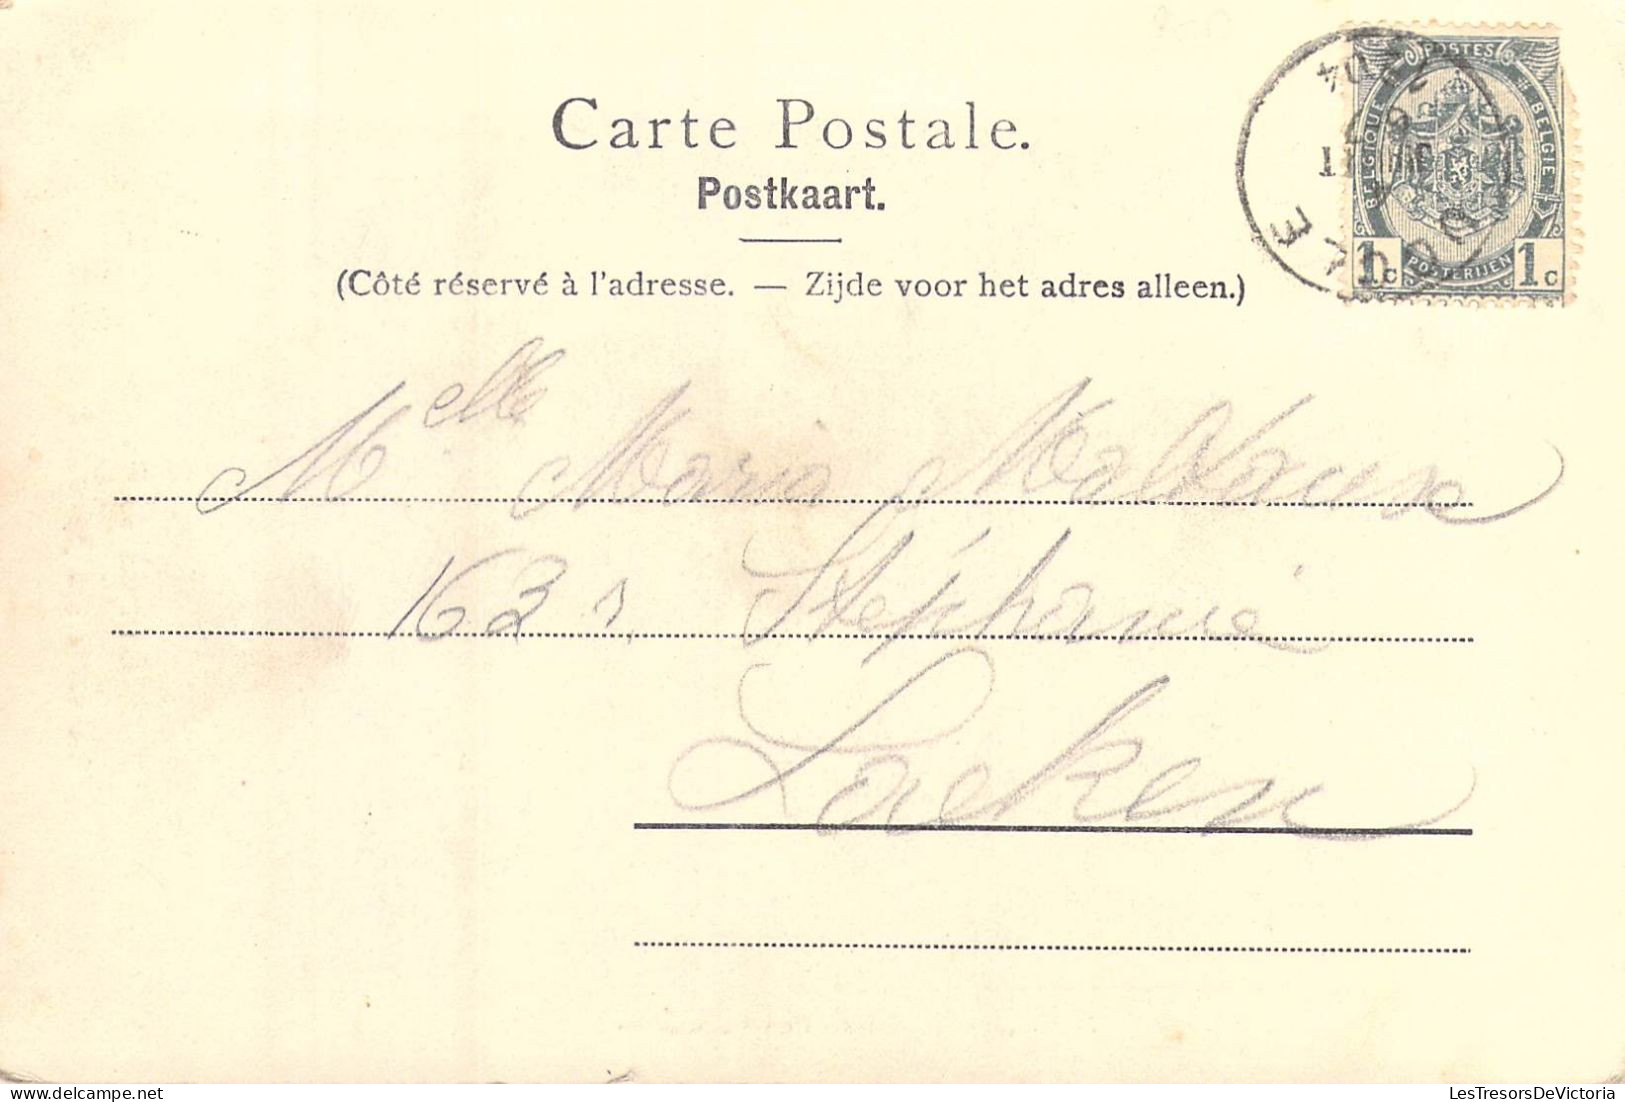 Carte Postale.
Postkaart.
(Côté réservé à l'adresse. — Zijde voor het adres alleen.)
POSTES
BELGIQUE
BELGIE
POSTERIJEN
1c 1c
Melle Maria
163 r. Stéphanie
Laeken
delcampe.net
LesTresorsDeVictoria